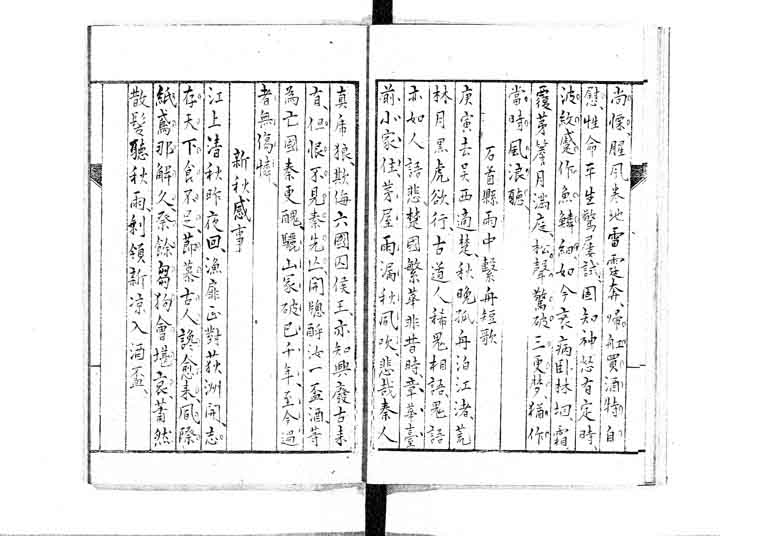 尚慄腥風卷地雪霆奔歸舡買酒特自
慰性命平生驚屢試固知神怒有定時
波紋蹙作魚鱗細如今衰病臥林坰霜
覆茅簷月滿庭松聲驚破三更夢猶作
當時風浪聽
石首縣雨中繫舟短歌
庚寅去吴西適楚秋晚孤舟泊江渚荒
林月黑虎欲行古道人稀鬼相語鬼語
亦如人語悲楚國繁華非昔時章華臺
前小家住茅屋雨漏秋風吹悲哉秦人
真虎狼欺侮六國囚侯王亦知興廢古來
有但恨不見秦先亾開牕酹汝一盃酒等
為亡國秦更醜驪山冢破已千年至今過
者無傷憐
新秋感事
江上清秋昨夜回漁扉正對荻洲開志
存天下食不足節慕古人讒愈來風際
紙鳶那解久祭餘芻狗會堪哀蕭然
散髮聽秋雨剩領新涼入酒盃